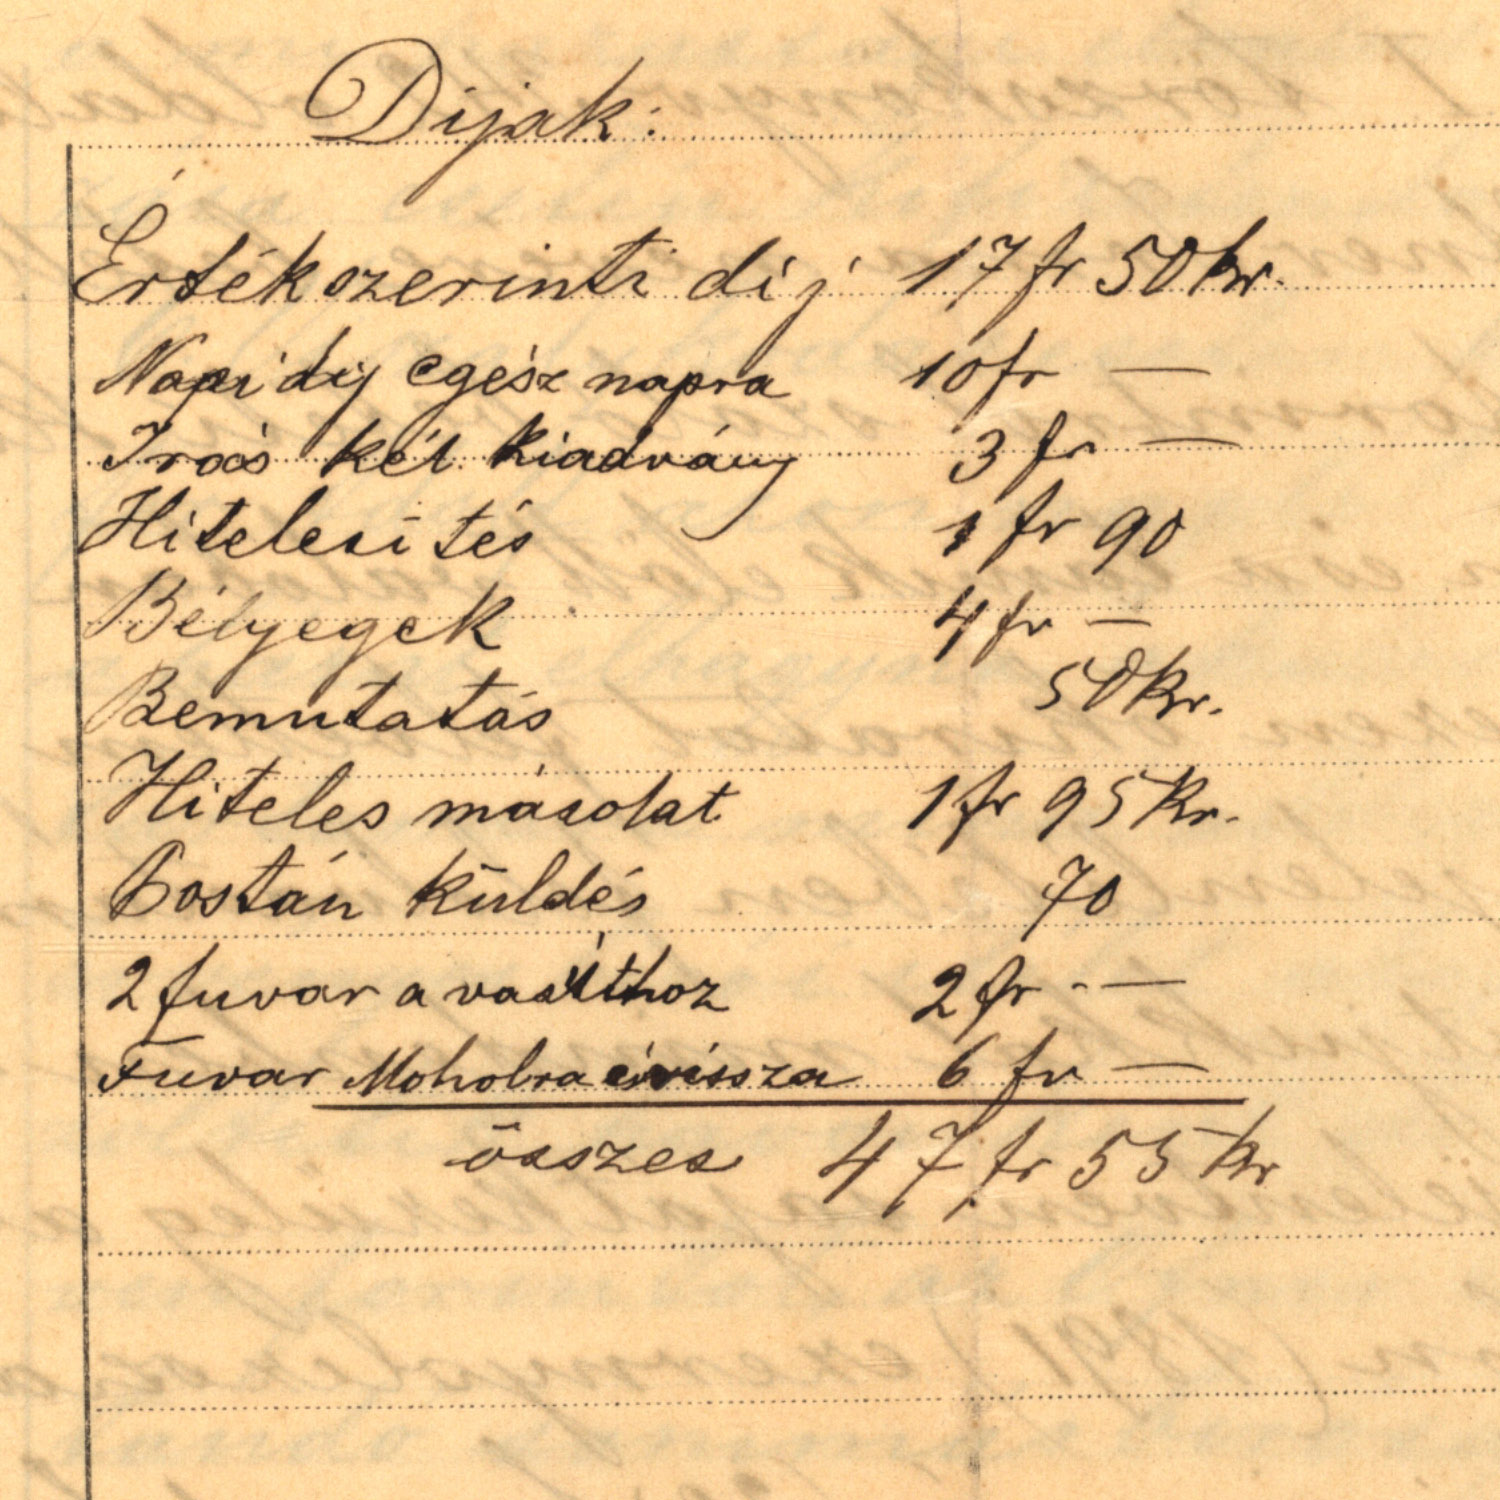 Dijak:
Értékszerinti dij 17 fr 50 kr.
Napi dij egész napra 10 fr —
Irás két kiadvány 3 fr —
Hitelesítés 1 fr 90
Bélyegek 4 fr —
Bemutatás 50 kr.
Hiteles másolat 1 fr 95 kr.
Postán küldés 70
2 fuvar a vasúthoz 2 fr. —
Fuvar Moholra és vissza 6 fr —
összes 47 fr 55 kr